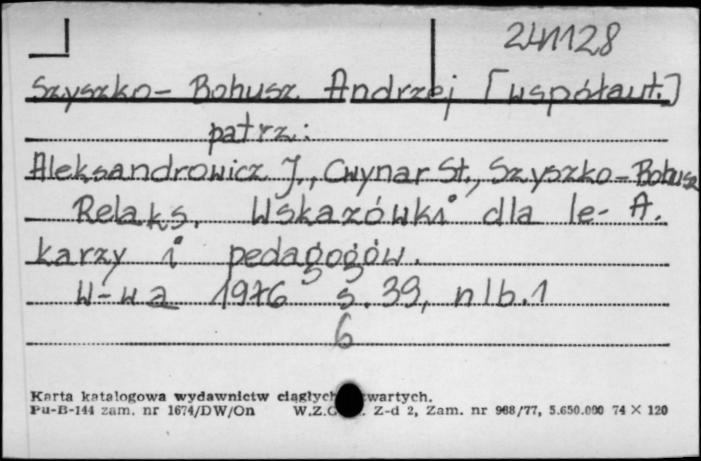 241128
Szyszko-Bohusz Andrzej [współaut.]
patrz:
Aleksandrowicz J., Cwynar St., Szyszko-Bohusz
Relaks. Wskazówki dla le- A.
karzy i pedagogów.
W-wa 1976 s. 39, nlb. 1
6
Karta katalogowa wydawnictw ciągłych
Pu-B-144 zam. nr 1674/DW/On W.Z.G Z-d 2, Zam. nr 968/77, 5.650.000 74 × 120